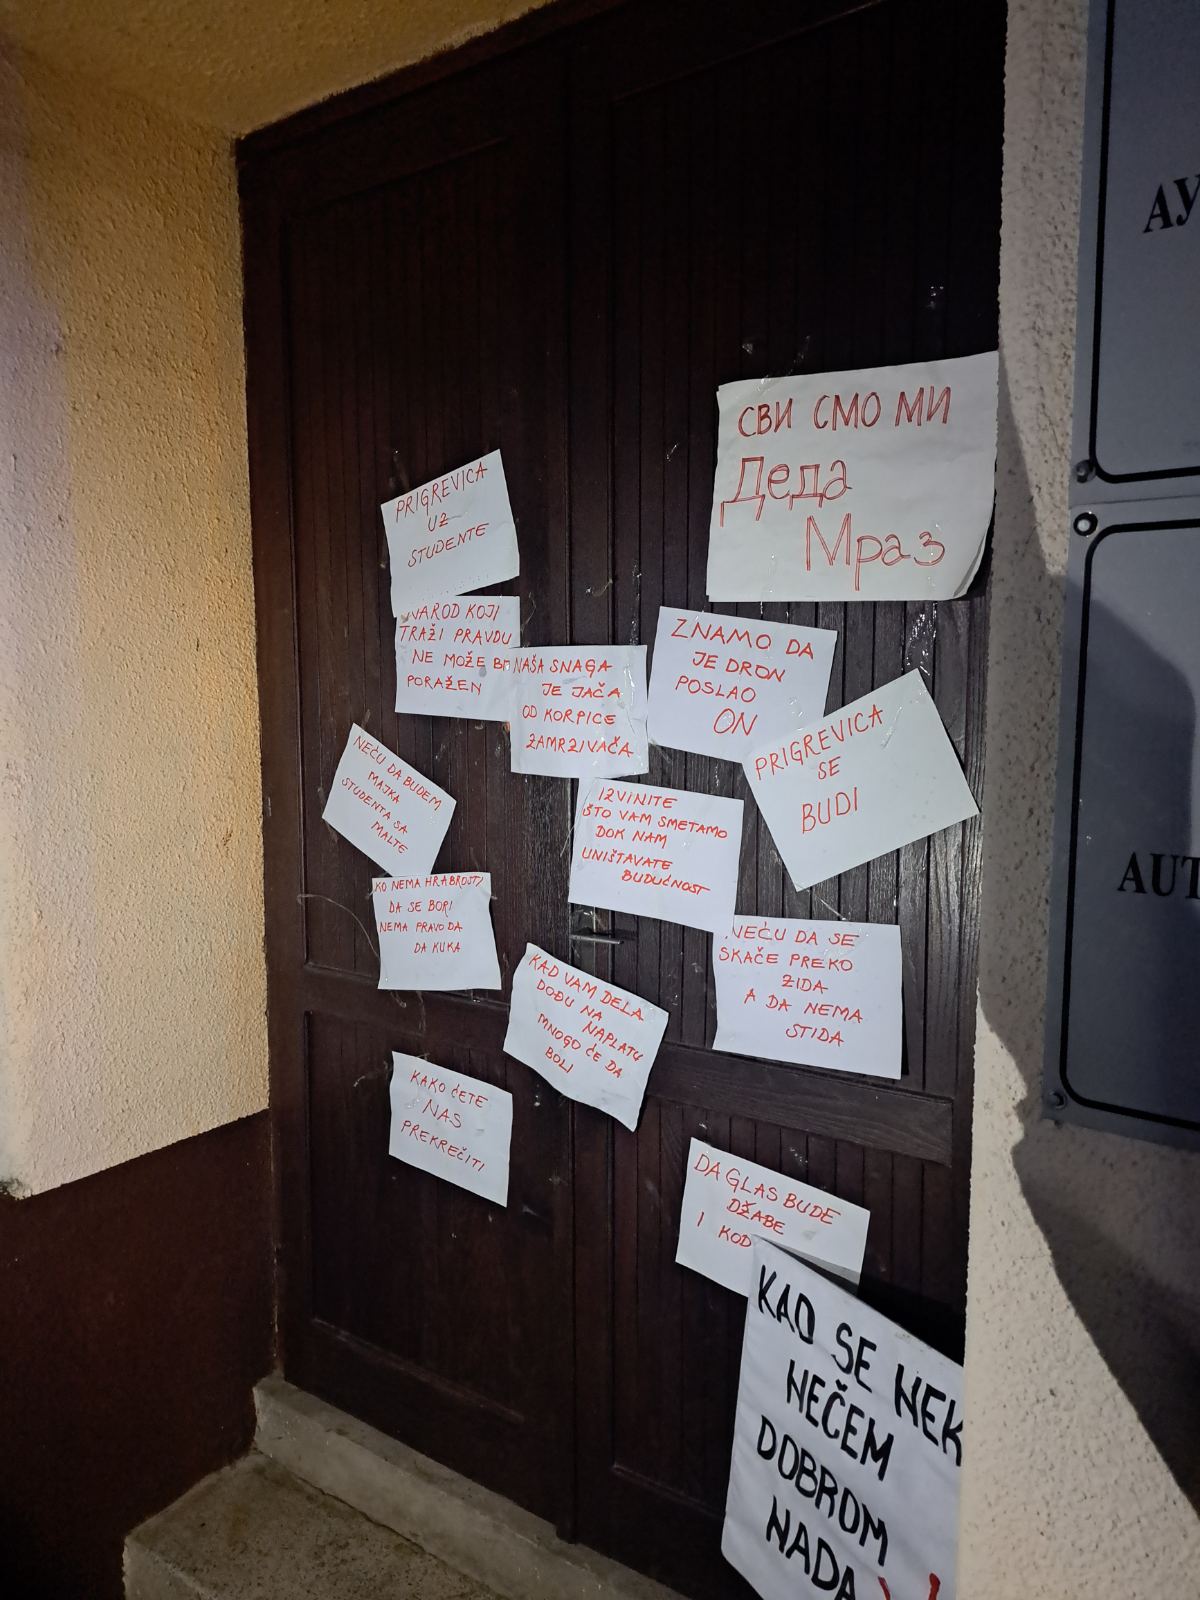 АУ
СВИ СМО МИ
Деда
Мраз
PRIGREVICA
UZ
STUDENTE
NAROD KOJI
TRAŽI PRAVDU
NE MOŽE
PORAŽEN
NAŠA SNAGA
JE JAČA
OD KORPICE
ZAMRZIVAČA
ZNAMO DA
JE DRON
POSLAO
ON
PRIGREVICA
SE
BUDI
NEĆU DA BUDEM
MAJKA
STUDENTA SA
MALTE
IZVINITE
ŠTO VAM SMETAMO
DOK NAM
UNIŠTAVATE
BUDUĆNOST
AUT
KO NEMA HRABROSTI
DA SE BORI
NEMA PRAVO DA
DA KUKA
NEĆU DA SE
SKAČE PREKO
ZIDA
A DA NEMA
STIDA
KAD VAM DELA
DOĐU NA
NAPLATU
MNOGO ĆE DA
BOLI
KAKO ĆETE
NAS
PREKREČITI
DA GLAS BUDE
DŽABE
I KOD
KAD SE NEK
NEČEM
DOBROM
NADA